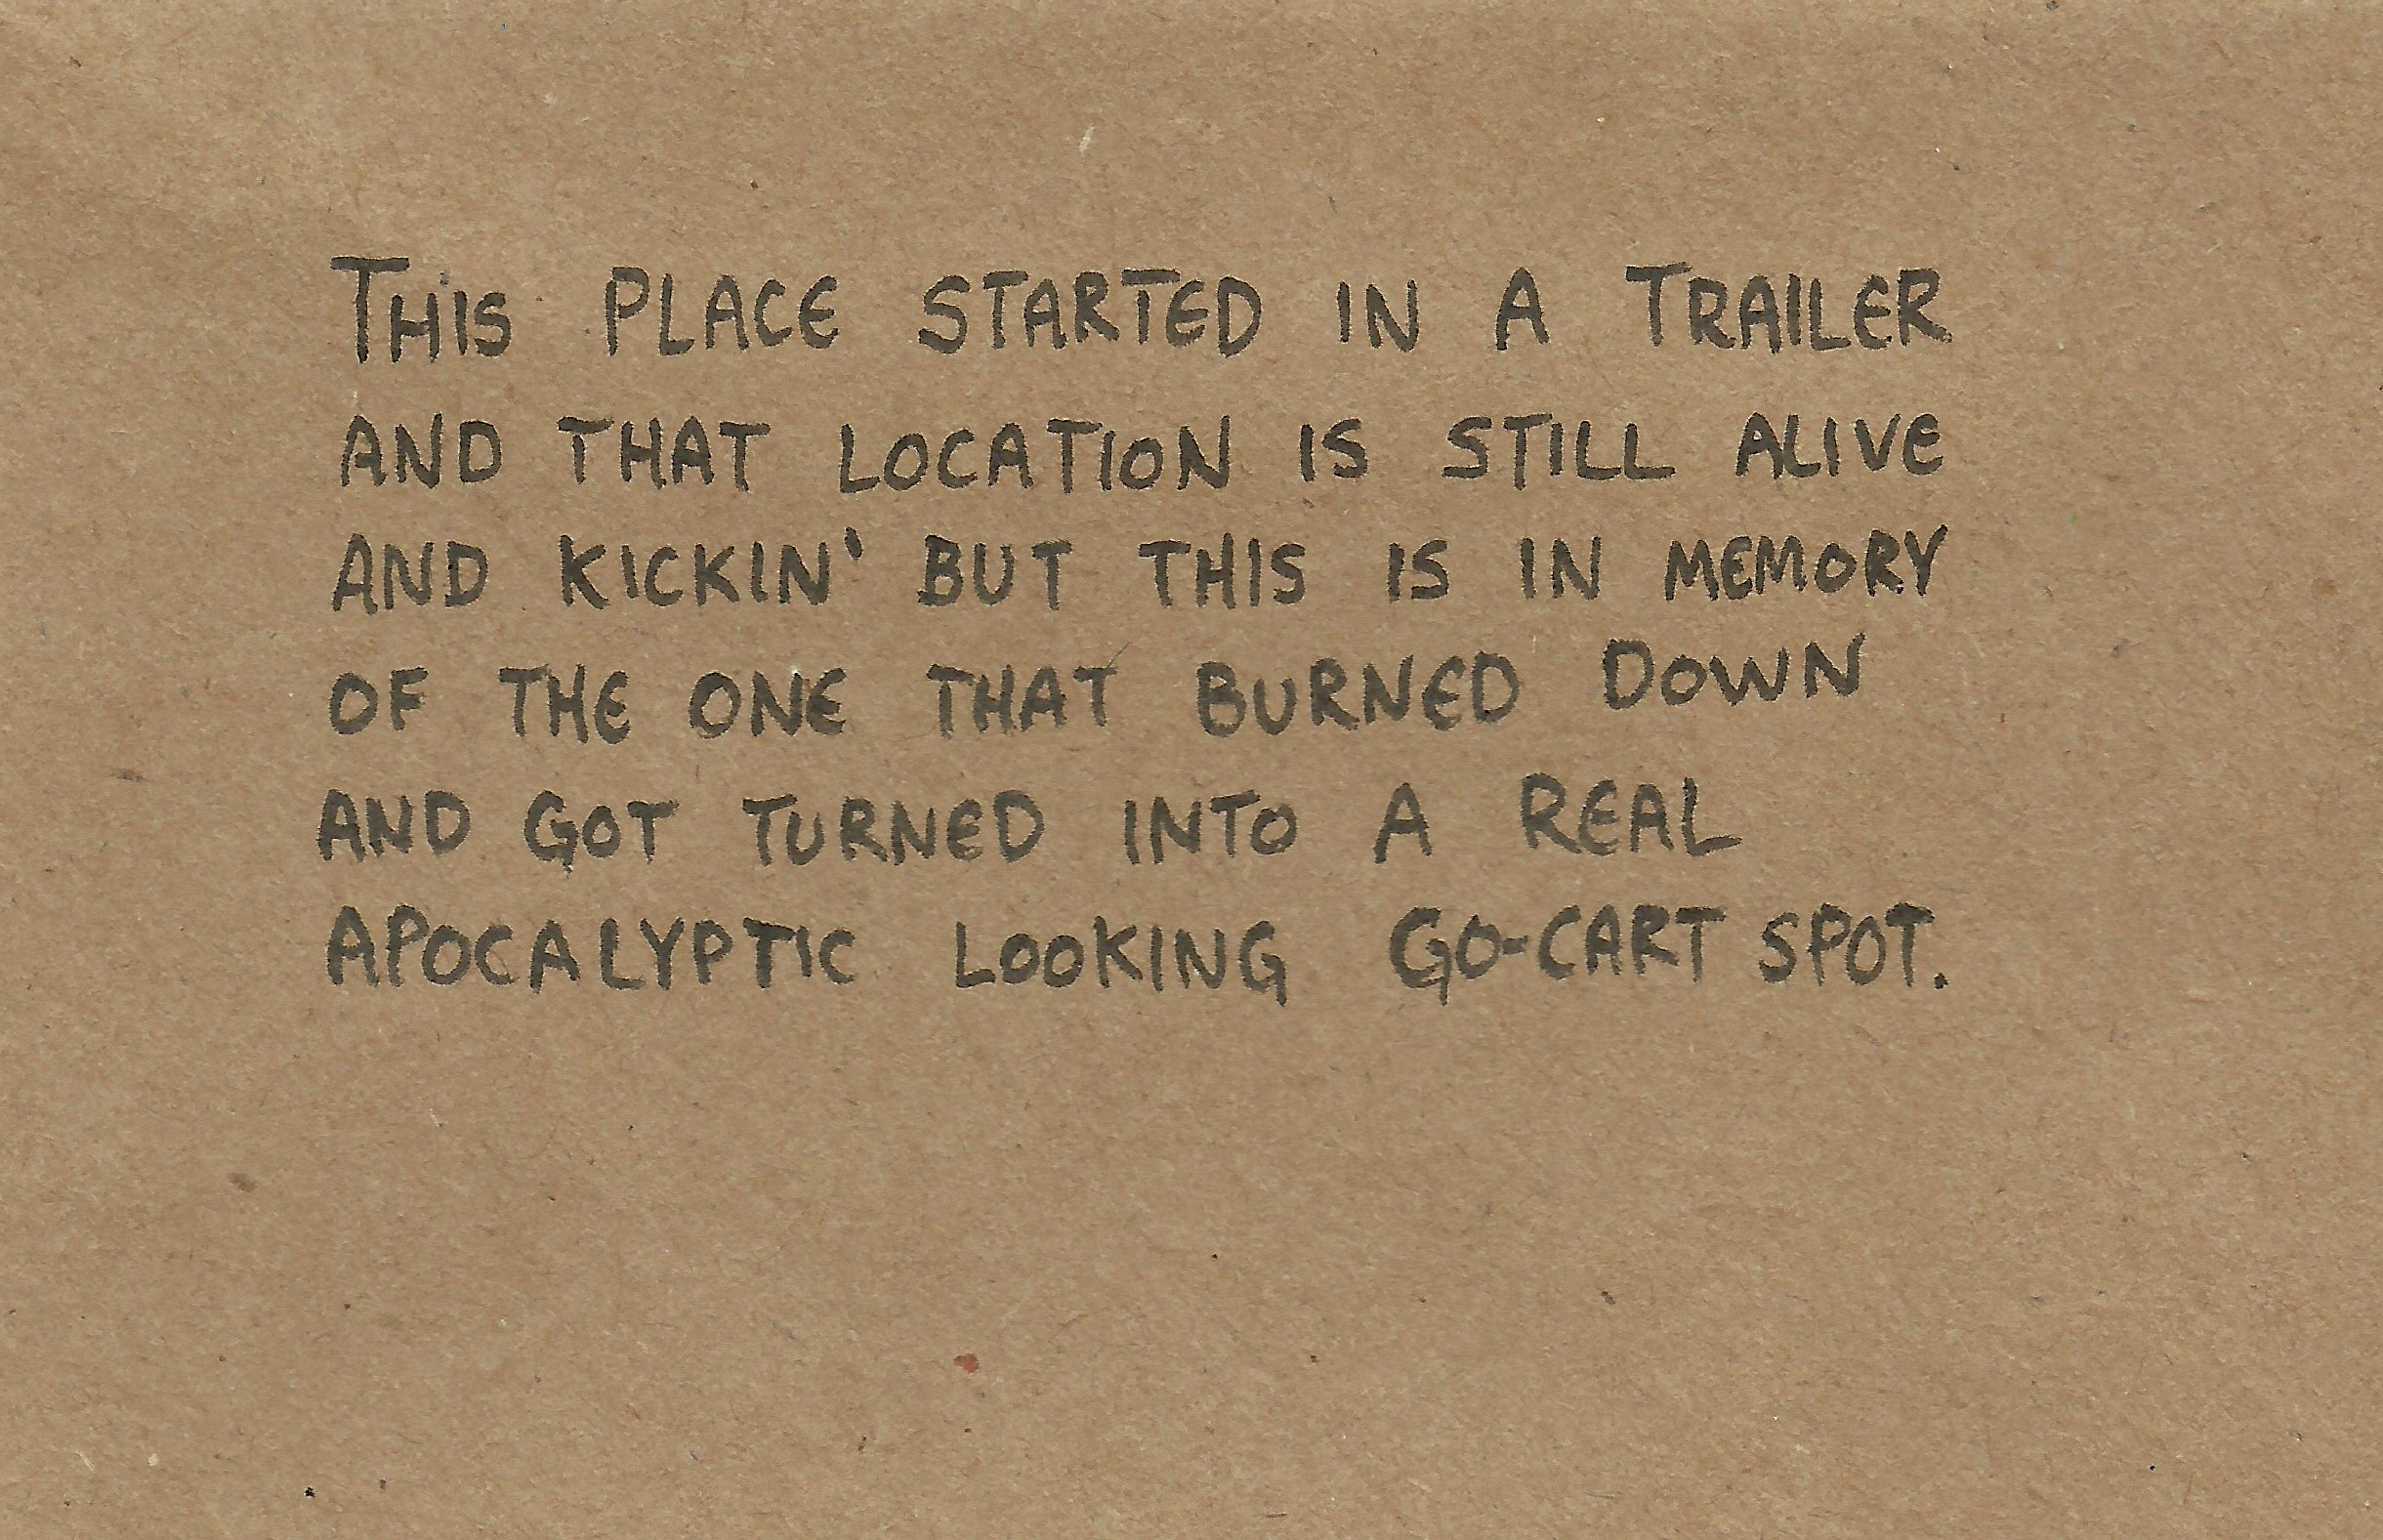 THIS PLACE STARTED IN A TRAILER
AND THAT LOCATION IS STILL ALIVE
AND KICKIN' BUT THIS IS IN MEMORY
OF THE ONE THAT BURNED DOWN
AND GOT TURNED INTO A REAL
APOCALYPTIC LOOKING GO-CART SPOT.